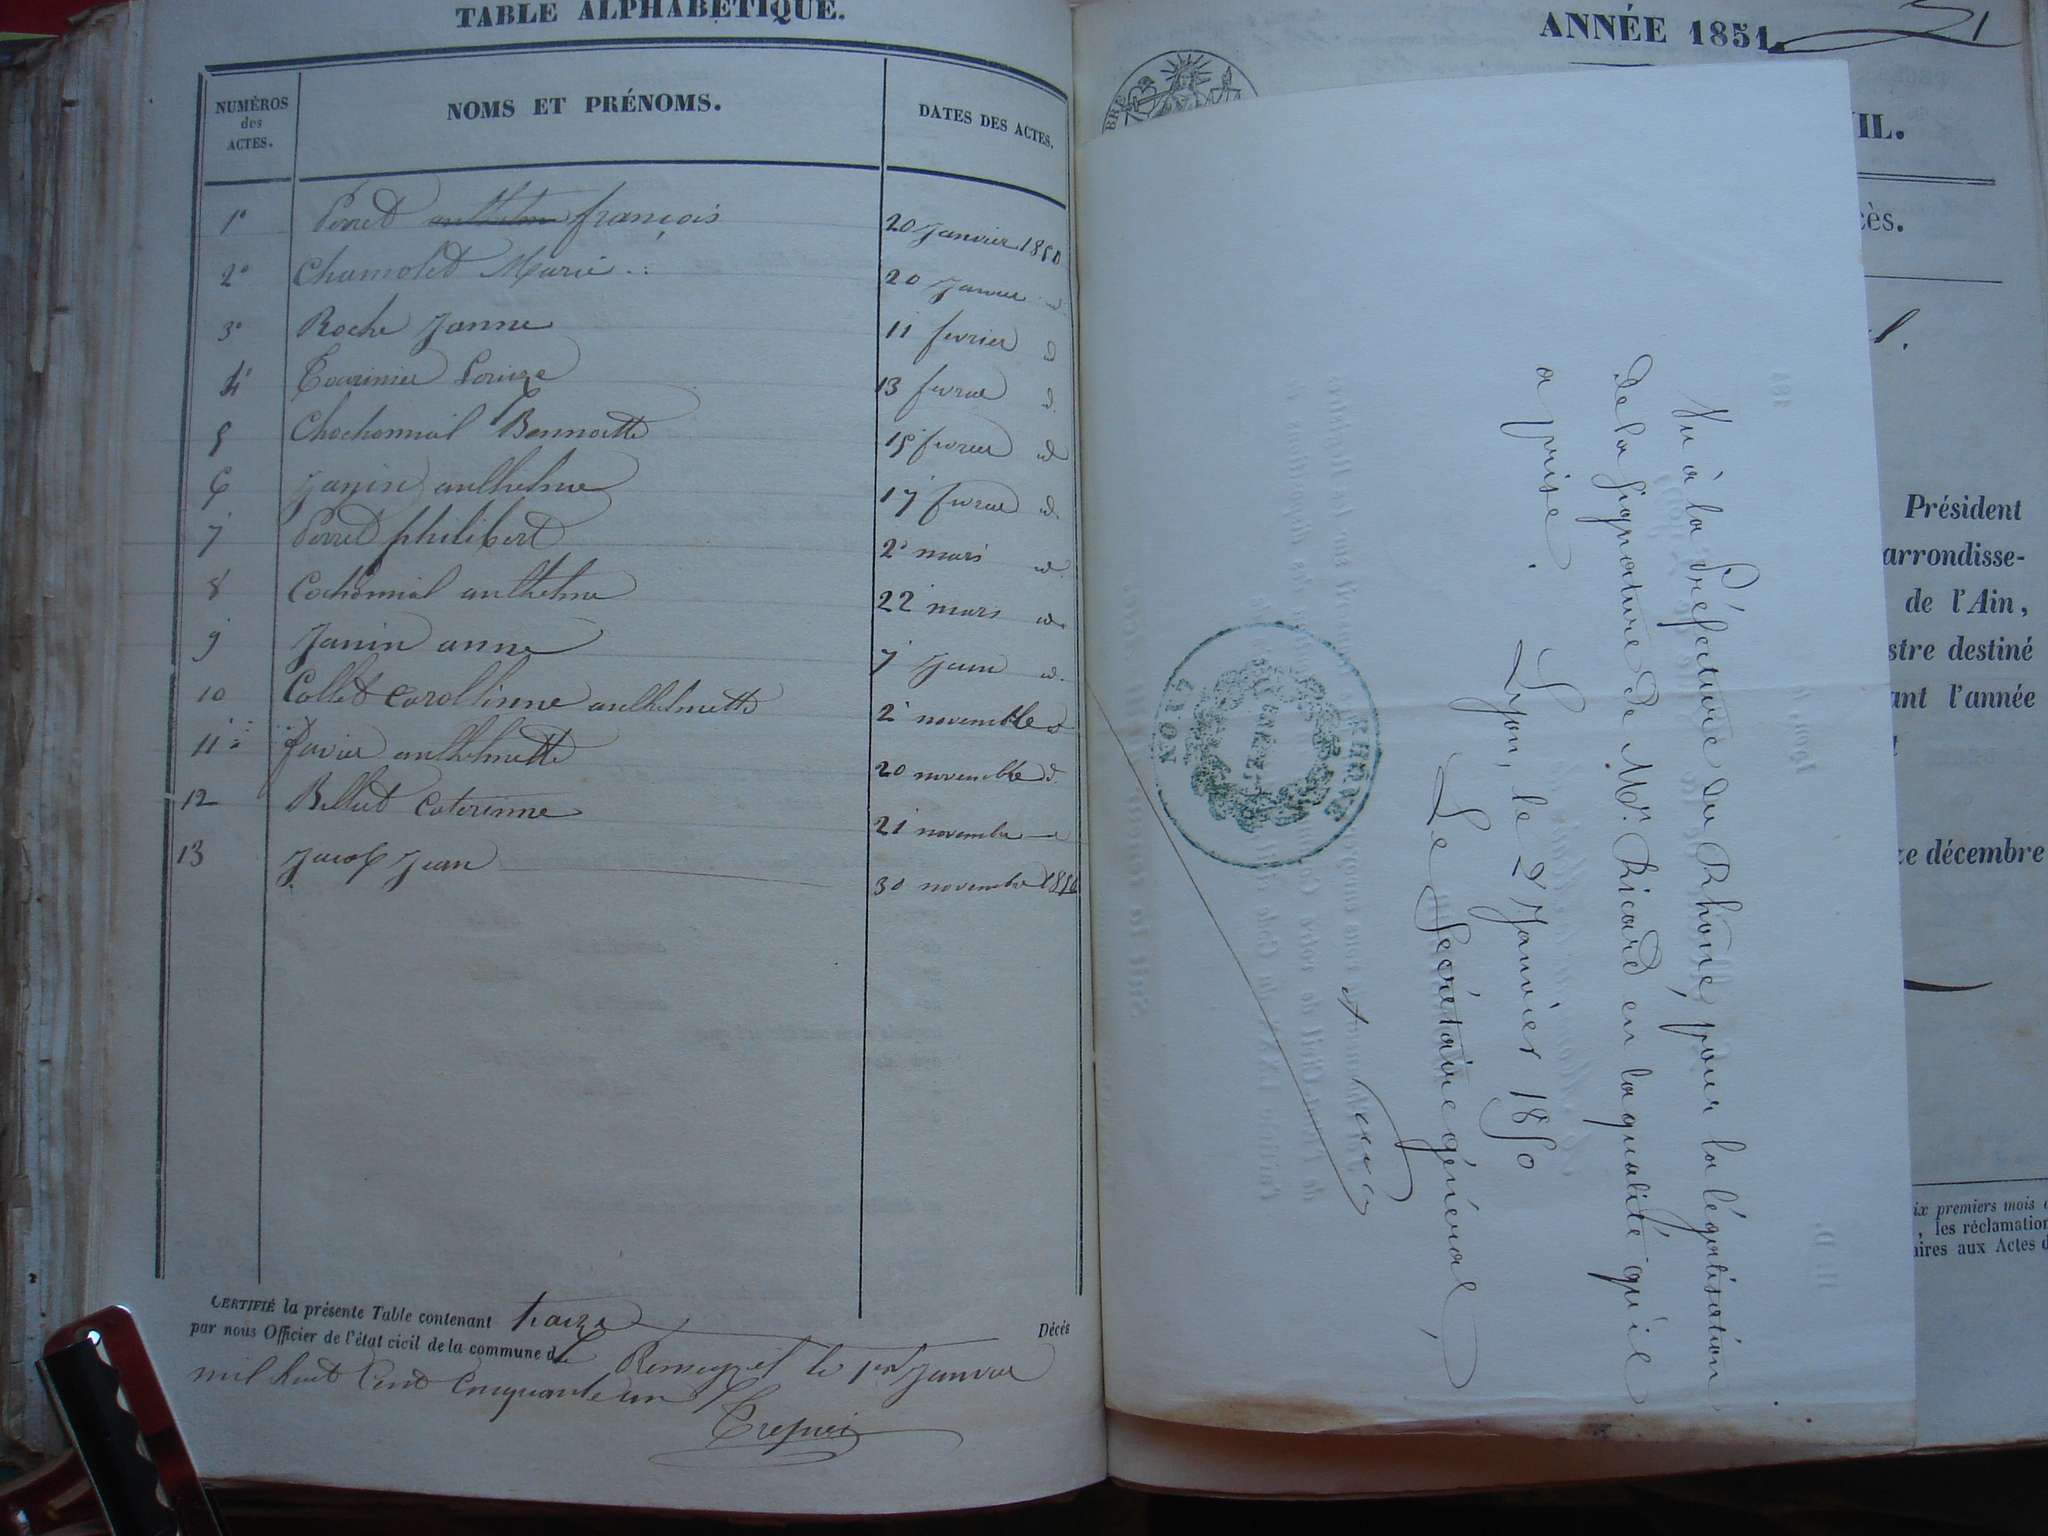 TABLE ALPHABÉTIQUE.
NUMÉROS
des
ACTES.
NOMS ET PRÉNOMS.
DATES DES ACTES.
1° Perret anthelme françois 20 Janvier 1850
2° Chamolet Marie 20 Janvier d
3° Roche Janne 11 fevrier d
4° 13 fevrier d.
5 Chochonnial Bennoitte 15 fevrier d
6 Janin anthelme 17 fevrier d.
7 Perret philibert 2 mars d.
8 Cochonnial anthelme 22 mars d.
9 Janin anne 7 Juin d.
10 Collet Carollinne anthelmette 2 novembre d
11 Javier anthelmette 20 novembre d.
12 Billiet Caterinne 21 novembre d
13 Jacob Jean 30 novembre 1850
CERTIFIÉ la présente Table contenant traize Décès
par nous Officier de l'état civil de la commune de le 1er Janvier
mil huit Cent Cinquante un
ANNÉE 1851.
51
BRE
IL.
cès.
Président
arrondisse-
de l'Ain,
stre destiné
ant l'année
ze décembre
ix premiers mois
, les réclamation
aires aux Actes d
Vu à la Préfecture du Rhône, pour la légalisation
de la signature de Mr. Ricard en la qualité qu'il
a prise. Lyon, le 2 Janvier 1850
Le Secrétaire général,
RHONE